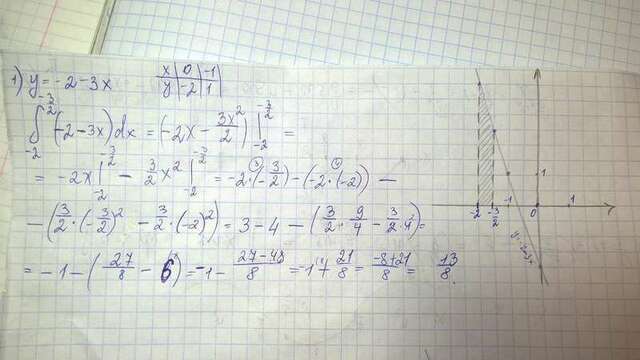 1) y = -2-3x
x | 0 | -1
y | -2 | 1
∫_{-2}^{-3/2} (-2-3x)dx = (-2x - 3x²/2) |_{-2}^{-3/2} =
= -2x |_{-2}^{-3/2} - 3/2 x² |_{-2}^{-3/2} = -2·(-3/2) - (-2·(-2)) -
- (3/2·(-3/2)² - 3/2·(-2)²) = 3-4 - (3/2·9/4 - 3/2·4) =
= -1 - (27/8 - 6) = -1 - (27-48)/8 = -1 + 21/8 = (-8+21)/8 = 13/8.
1
-2 -3/2 -1 0 1